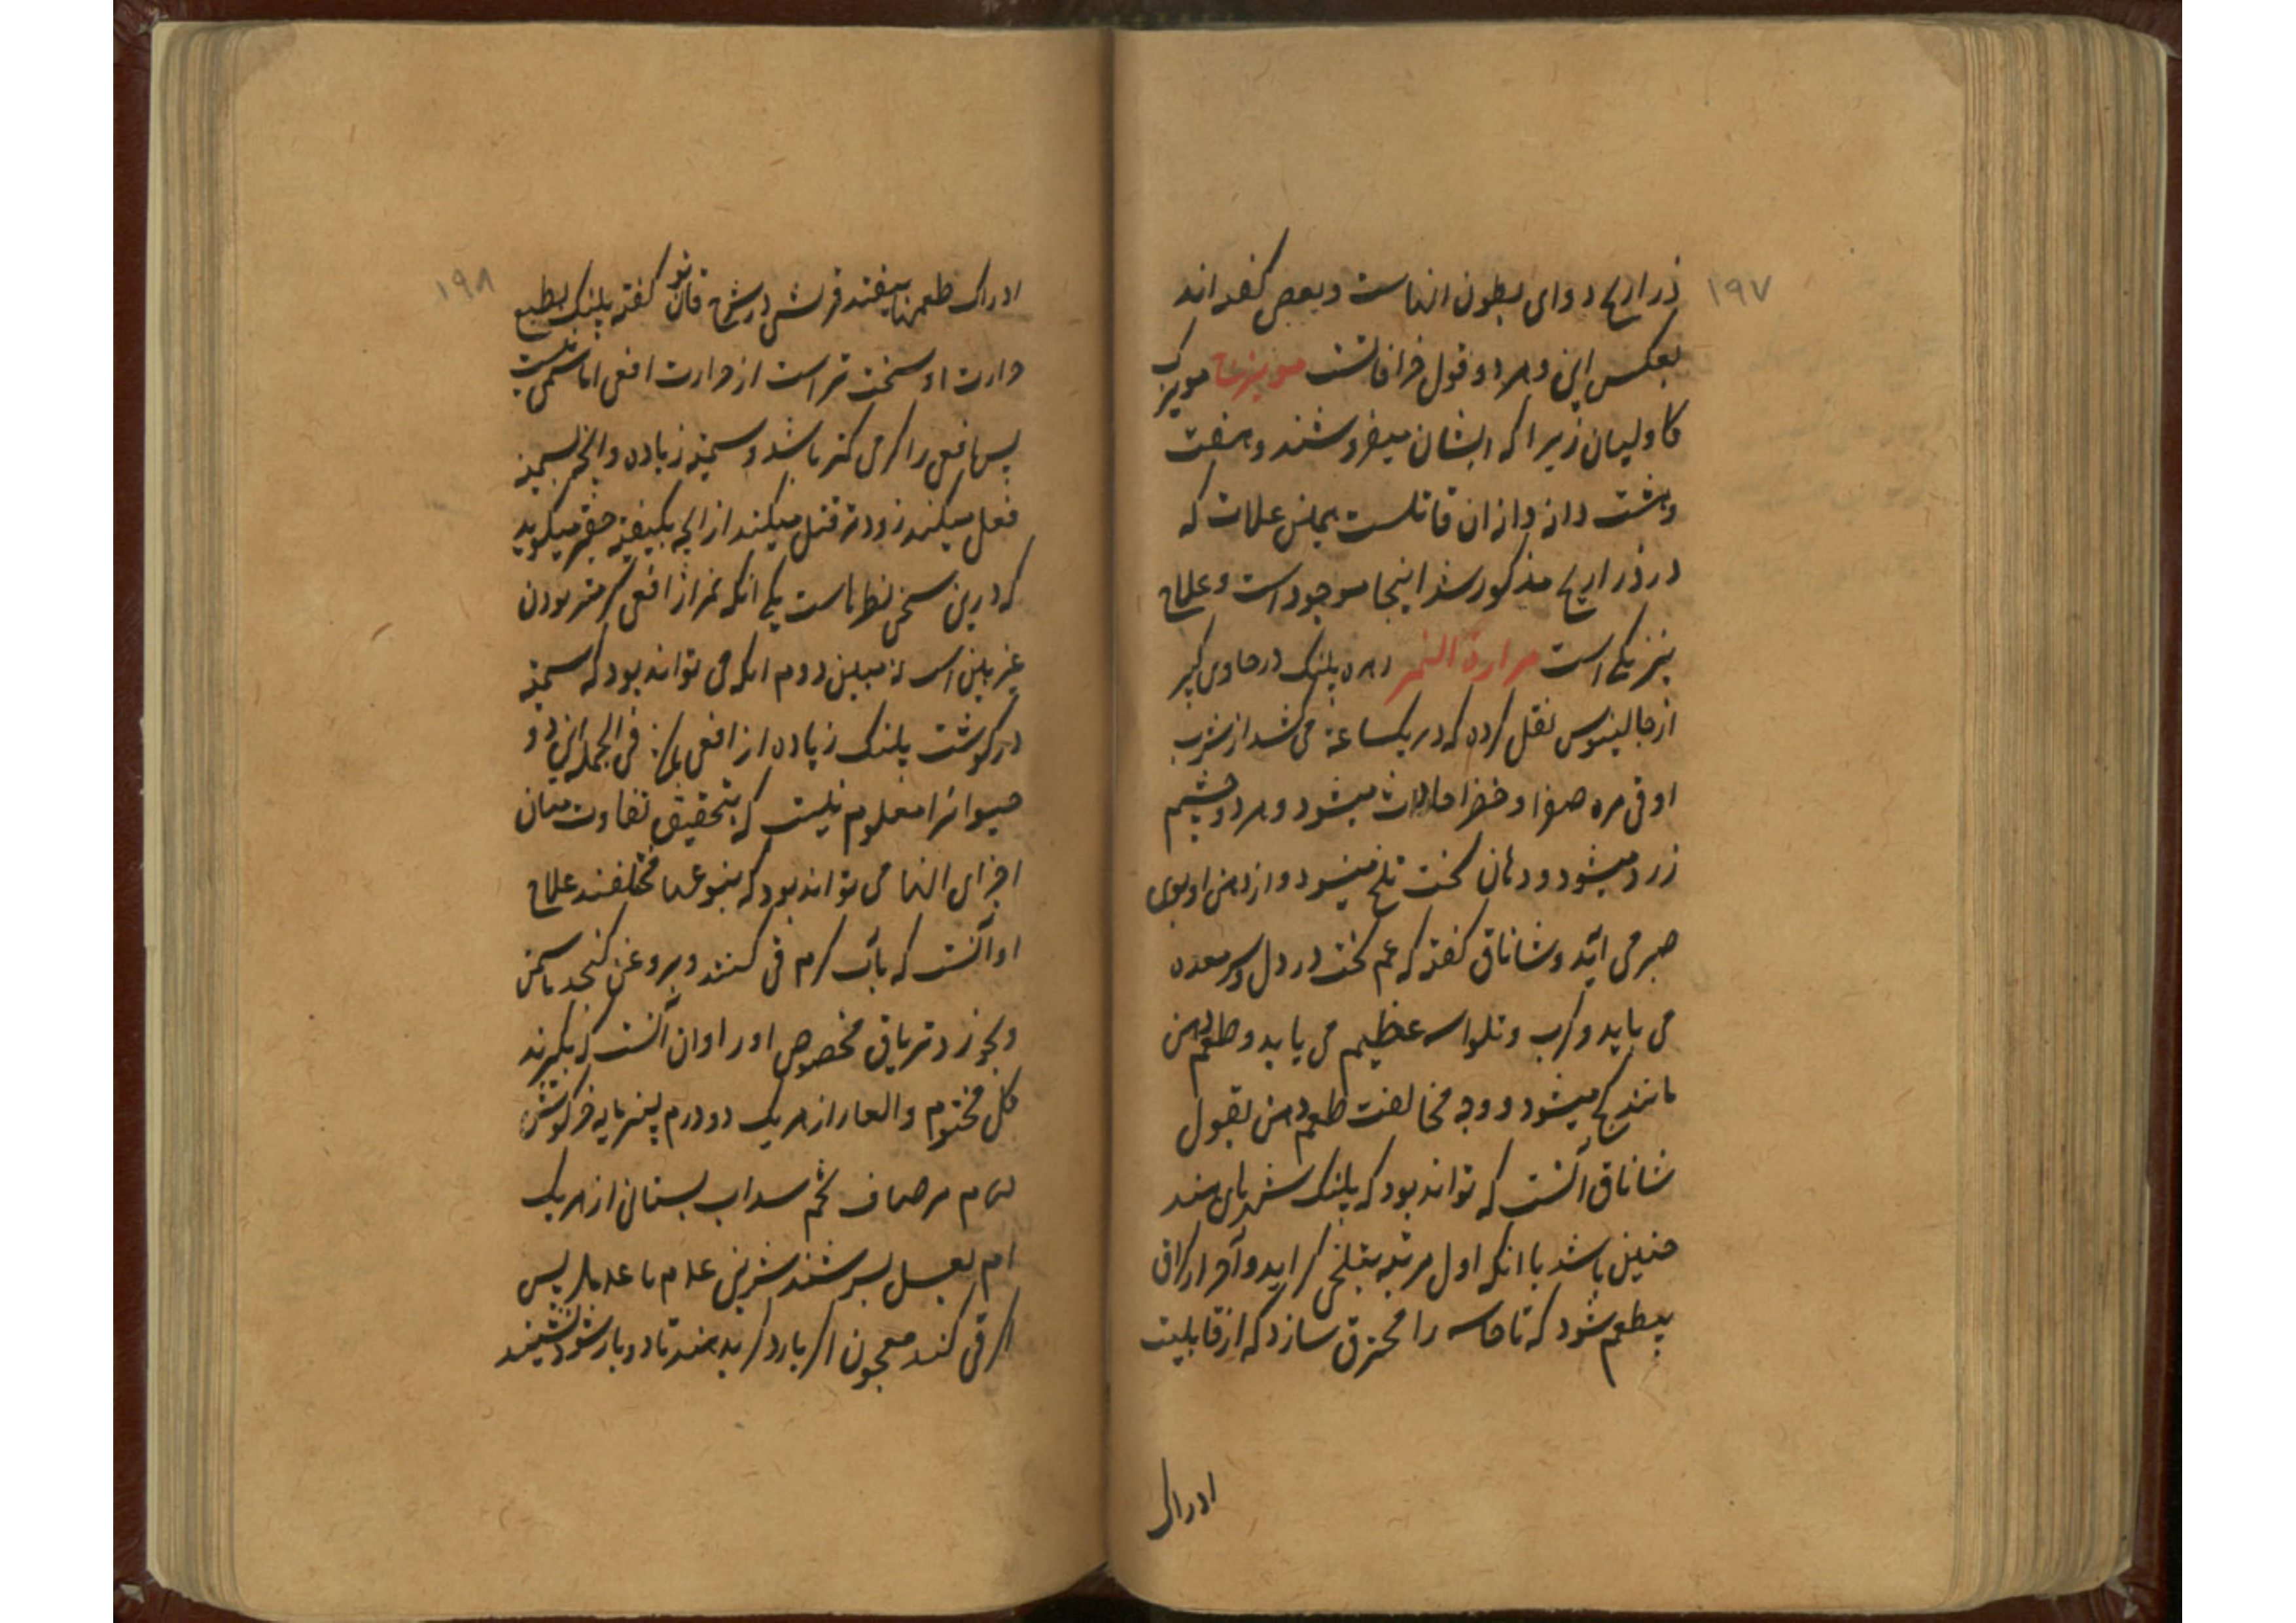 ۱۹۷
ذراریح دوای بطون انهاست و بعض گفته اند
بعکس این و هر دو قول خرافاتست مویزها مویزک
کاولیان زیرا که ایشان میفروشند و هفت
و هشت دانه دانه ازان قاتلست بهمان علامات که
در ذراریح مذکور شد اینجا موجود است و علاج
نیز یکی است مرارة النمر زهره پلنک در حاوی کبیر
از جالینوس نقل کرده که در یکساعة می کشد از شرب
او قی مره صفرا و خضرا حادث میشود و هر دو چشم
زرد میشود و دهان سخت تلخ میشود و از دهن او بوی
صبر می آید و شاناق گفته که غم سخت در دل و سر معده
می یابد و کرب و تلواسه عظیم می یابد و طعم دهن
مانند میشود و وجه مخالفت طعم دهن بقول
شاناق آنست که تواند بود که پلنک
چنین باشد با انکه اول مرتبه بتلخی کراید و آخر از
بیطعم شود که تا حاسه را محترق سازد که از قابلیت
ادراک
۱۹۸
ادراک طعمها بیفتد قرشی در شرح قانون گفته پلنک بطبع
حرارت او سخت تر است از حرارت افعی اما سمی نیست
پس افعی را گرمی کمتر باشد و سمیة زیاده و انچه بسمیة
فعل میکند زودتر قتل میکند از انچه بکیفیة حقیر میگوید
که درین سخن نظرهاست یکی انکه نمر از افعی گرمتر بودن
غیر بین است نه مبین دوم انکه می تواند بود که سمیة
در گوشت پلنک زیاده از افعی فی الجمله این دو
حیوانرا معلوم نیست که بتحقیق تفاوت میان
اجزای انها می تواند بود که بنوعها مختلفند علاج
او آنست که بآب گرم قی کنند و بروغن کنجد یا سمن
و تریاق مخصوص او آنست که بگیرند
گل مختوم و الغار از هر یک دو درم پنیر مایه خرگوش
مر صاف تخم سداب بستانی از هر یک
بعسل بسرشند شربتی پس
اگر قی کند معجون اگر بار دگر بدهند تا دو بار شود بنشیند